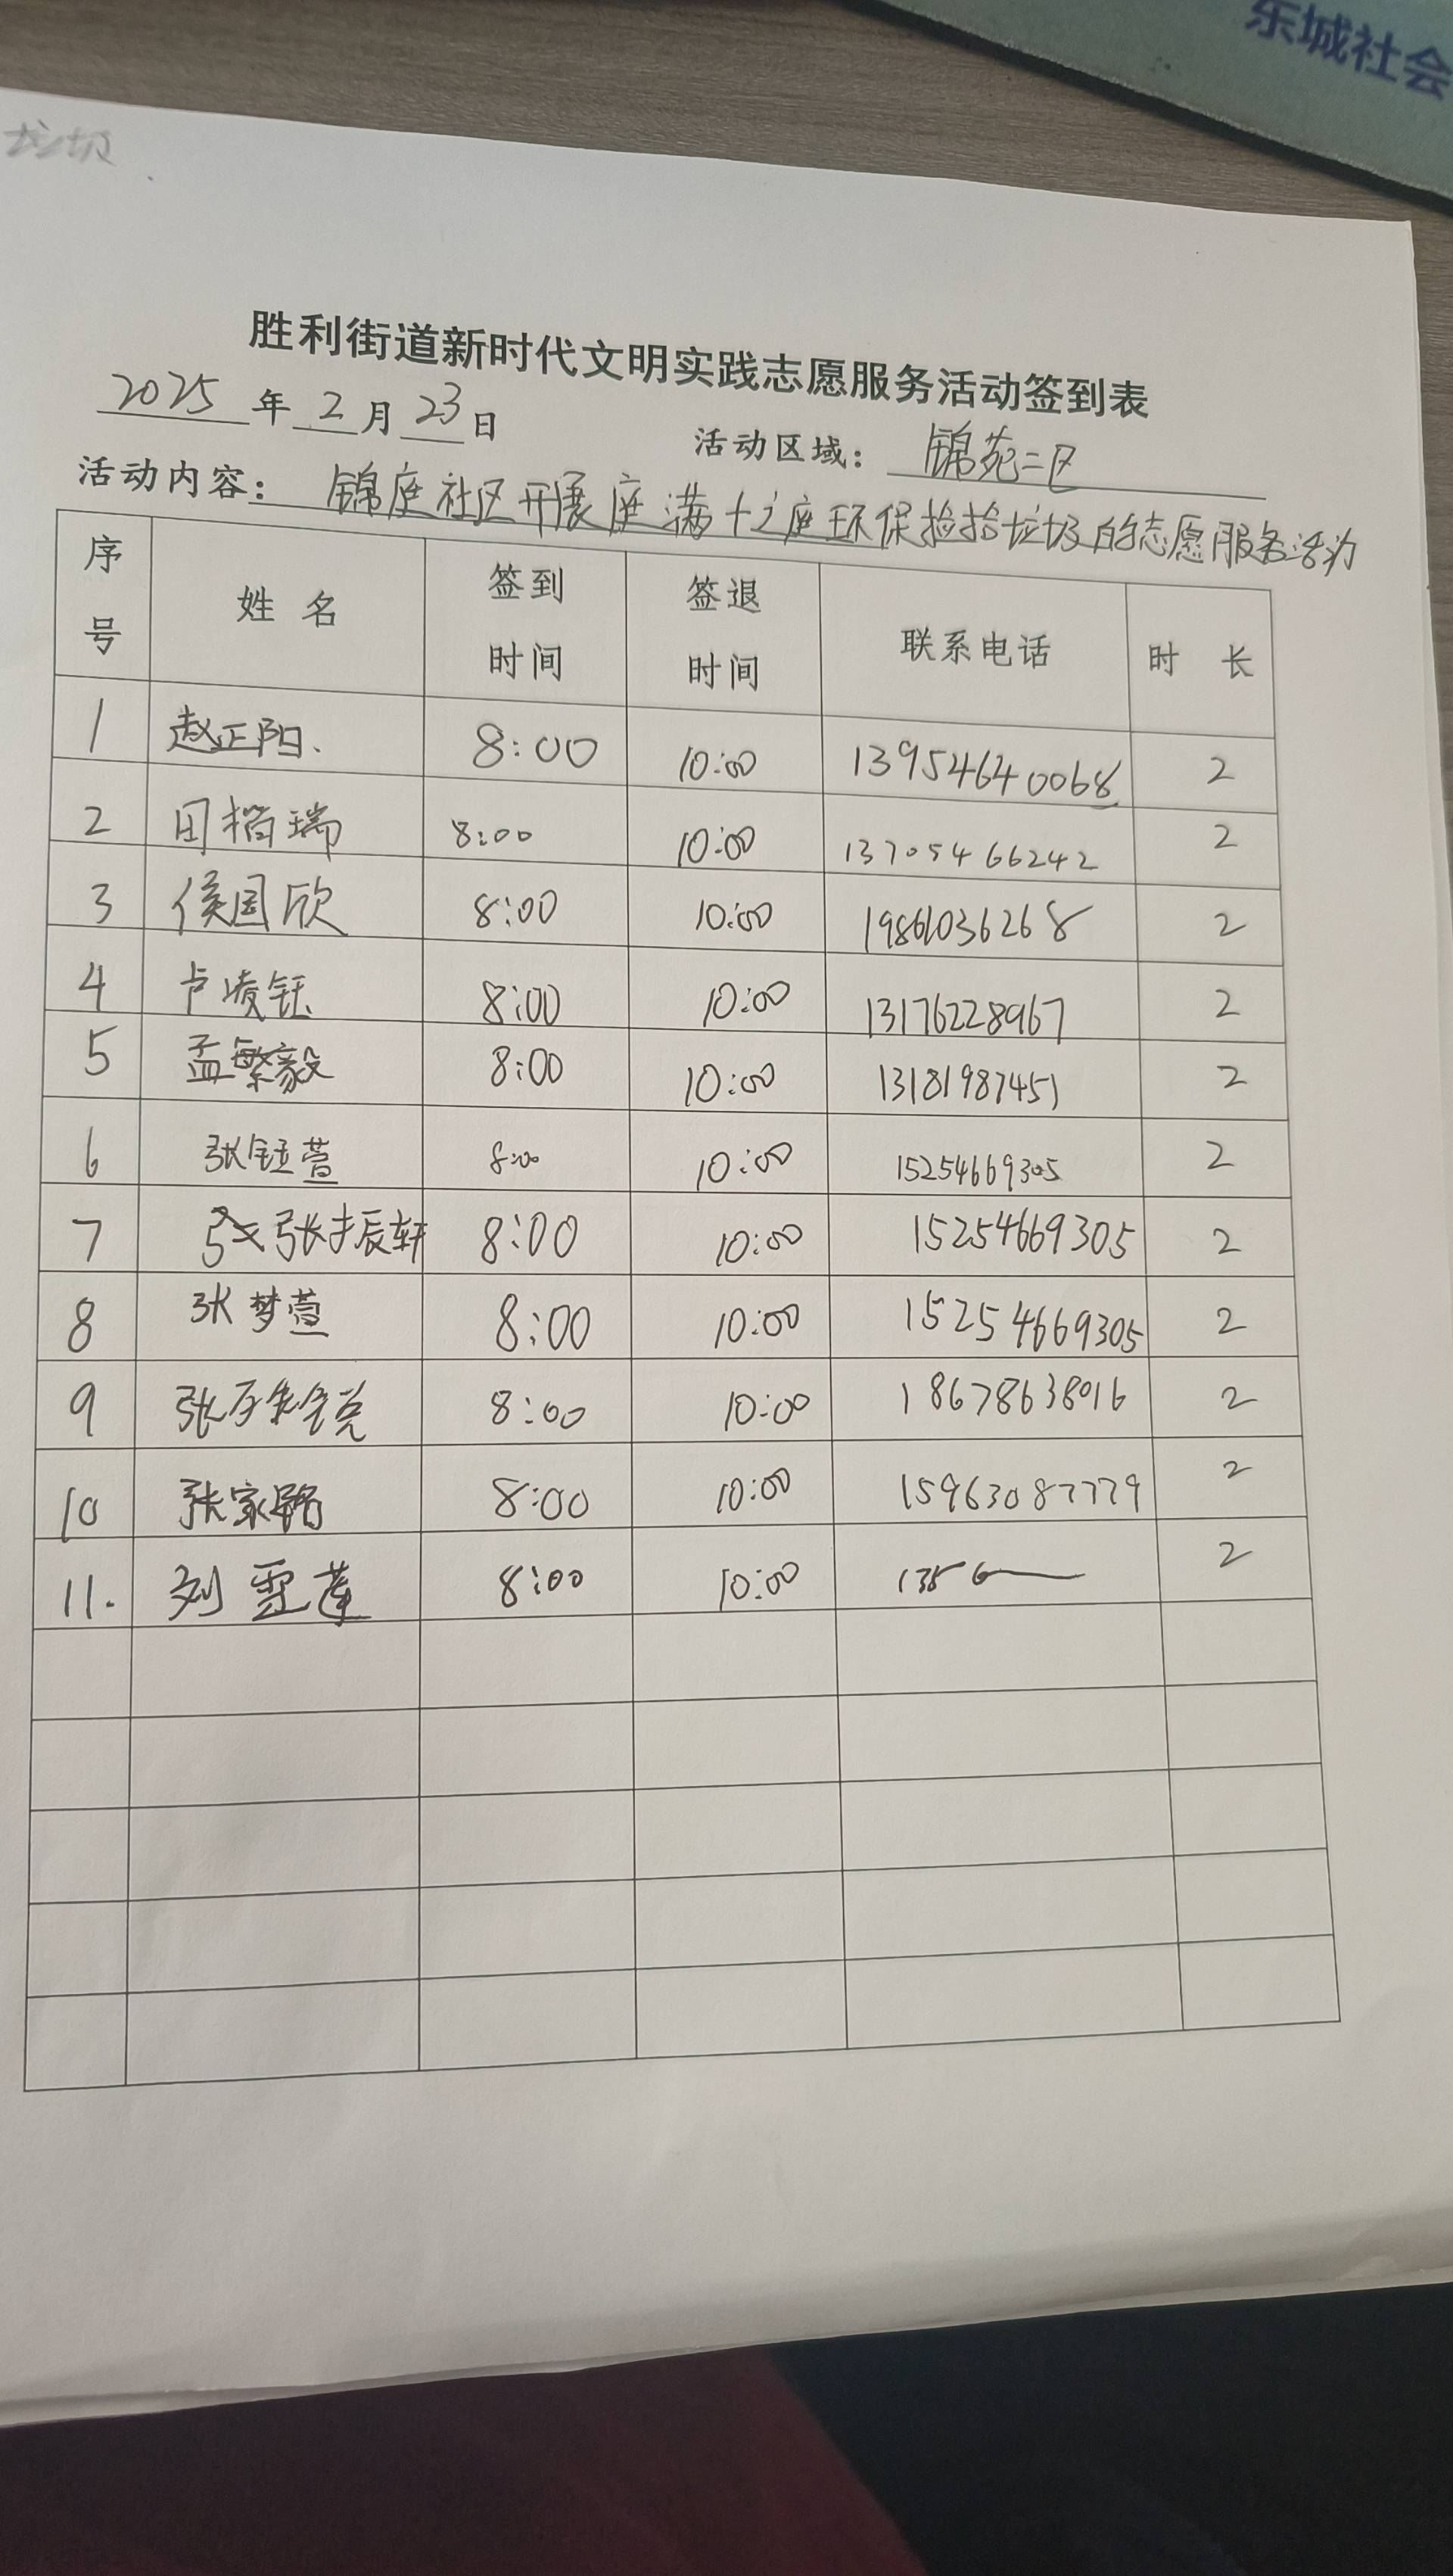 东城社会
垃圾
胜利街道新时代文明实践志愿服务活动签到表
2025年2月23日 活动区域：锦苑二区
活动内容：锦庭社区开展庭满十之座环保捡拾垃圾的志愿服务活动
序号 姓名 签到时间 签退时间 联系电话 时长
1 赵正阳. 8:00 10:00 13954640068 2
2 田楷瑞 8:00 10:00 13705466242 2
3 侯国欣 8:00 10:00 19861036268 2
4 卢凌钰 8:00 10:00 13176228967 2
5 孟繁毅 8:00 10:00 13181987451 2
6 张钰萱 8:00 10:00 15254669305 2
7 张振轩 8:00 10:00 15254669305 2
8 张梦萱 8:00 10:00 15254669305 2
9 张 锐 8:00 10:00 18678638016 2
10 张家 8:00 10:00 15963087779 2
11. 刘雪莲 8:00 10:00 2